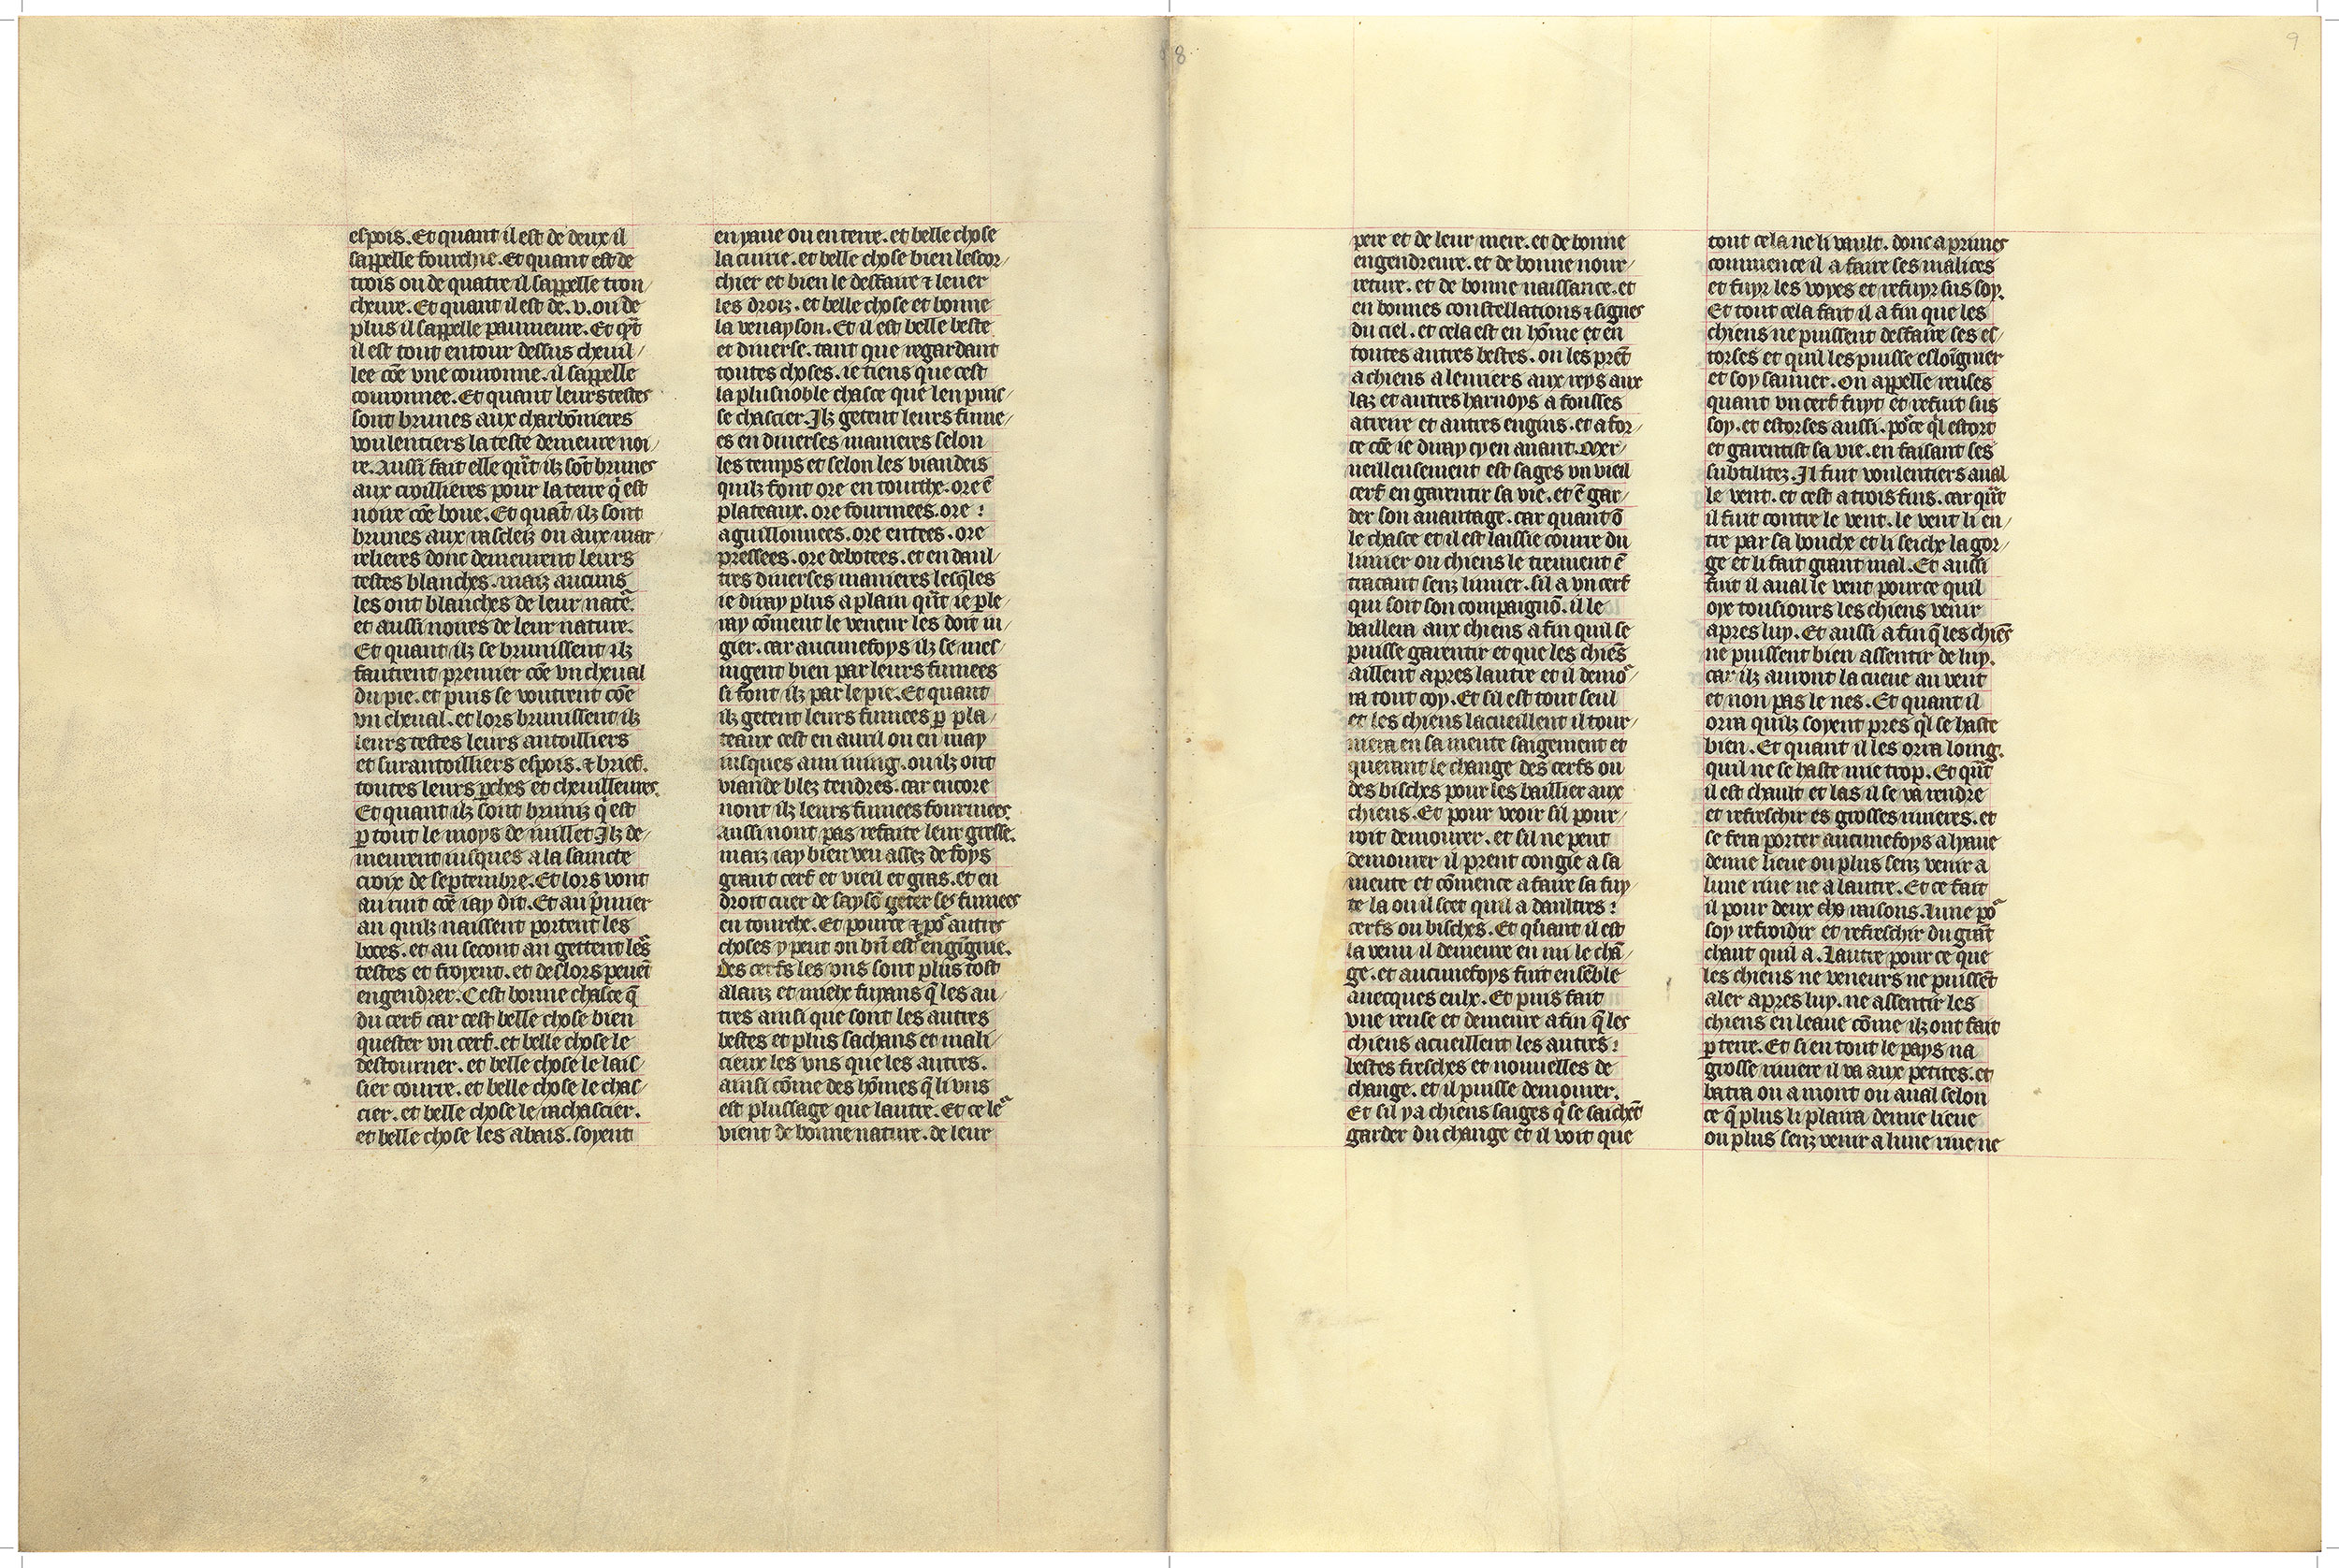 8
9
espois. Et quant il est de deux il
sappelle fourchie. Et quant est de
trois ou de quatre il sappelle tron/
cheure. Et quant il est de .v. ou de
plus il sappelle paumeure. Et qñt
il est tout entour dessus cheuil/
lee cõe vne couronne. il sappelle
couronnee. Et quant leurs testes
sont brunes aux charbõnieres
voulentiers la teste demeure noi/
re. Aussi fait elle qñt ilz sõt brunes
aux croillieres pour la terre q̃ est
noire cõe boue. Et quãt ilz sont
brunes aux rascleiz ou aux mar/
relieres donc demeurent leurs
testes blanches. maiz aucuns
les ont blanches de leur natẽ.
et aussi noires de leur nature.
Et quant ilz se brunissent ilz
fautrent premier cõe vn cheual
du pie. et puis se voutrent cõe
vn cheual. et lors brunissent ilz
leurs testes leurs antoilliers
et surantoilliers espois. ⁊ brief.
toutes leurs ꝑches et cheuilleures.
Et quant ilz sont bruniz q̃ est
ꝑ tout le moys de iuillet Ilz de/
meurent iusques a la saincte
croix de septembre. Et lors vont
au ruit cõe iay dit. Et au p̃mier
an quilz naissent portent les
boces. et au secont an gettent les̃
testes et froyent. et deslors peuẽt
engendrer. Cest bonne chasce q̃
du cerf car cest belle chose bien
quester vn cerf. et belle chose le
destourner. et belle chose le lais/
sier courre. et belle chose le chas/
cier. et belle chose le rachascier.
et belle chose les abais. soyent
en yaue ou en terre. et belle chose
la cuirie. et belle chose bien lescor/
chier et bien le desfaire ⁊ leuer
les droiz. et belle chose et bonne
la venayson. Et il est belle beste
et diuerse. tant que regardant
toutes choses. ie tiens que cest
la plusnoble chasce que len puis/
se chascier. Ilz getent leurs fume/
es en diuerses manieres selon
les temps et selon les viandeis
quilz font ore en tourche. ore ẽ
plateaux. ore fourmees. ore :
aguillonnees. ore entees. ore
pressees. ore debotees. et en daul/
tres diuerses manieres lesq̃les
ie diray plus a plain qñt ie ꝑle/
ray cõment le veneur les doit iu/
gier. car aucunefoys ilz se mes/
iugent bien par leurs fumees
si font ilz par le pie. Et quant
ilz getent leurs fumees ꝑ pla/
teaux cest en auril ou en may
iusques a mi iuing. ou ilz ont
viande blez tendres. car encore
nont ilz leurs fumees fourmees.
aussi nont pas refaite leur gresse.
maiz iay bien veu assez de foys
grant cerf et vieil et gras. et en
droit cuer de saysõ geter ses fumees
en tourche. Et pource ⁊ põ autres
choses y peut on biñ est̃ engigñie.
Des cerfs les vns sont plus tost
alanz et mielx fuyans q̃ les au/
tres ainsi que sont les autres
bestes et plus sachans et mali/
cieux les vns que les autres.
ainsi cõme des hõmes q̃ li vns
est plussage que lautre. Et ce le᷑
vient de bonne nature. de leur
pere et de leur mere. et de bonne
engendreure. et de bonne nour/
reture. et de bonne naissance. et
en bonnes constellations ⁊ signes
du ciel. et cela est en hõme et en
toutes autres bestes. on les prẽt
a chiens a leuriers aux reys aux
laz et autres harnoys a fousses
a trere et autres engins. et a for/
ce cõe ie diray cy en auant. Mer/
ueilleusement est sages vn vieil
cerf en garentir sa vie. et ẽ gar/
der son auantage. car quant õ
le chasce et il est laissie courre du
limier ou chiens le treuuent ẽ
tracant senz limier. sil a vn cerf
qui soit son compaignõ. il le
baillera aux chiens a fin quil se
puisse garentir et que les chiẽs
aillent apres lautre et il demo᷑/
ra tout coy. Et sil est tout seul
et les chiens lacueillent il tour/
nera en sa meute saigement et
querant le change des cerfs ou
des bisches pour les baillier aux
chiens. Et pour veoir sil pour/
roit demourer. et sil ne peut
demourer il prent congie a sa
meute et cõmence a faire sa fuy/
te la ou il scet quil a daultres :
cerfs ou bisches. Et quant il est
la venu il demeure en mi le chã/
ge. et aucunefoys fuit ensẽble
auecques eulx. Et puis fait
vne reuse et demeure a fin q̃ les
chiens acueillent les autres :
bestes fresches et nouuelles de
change. et il puisse demourer.
Et sil y a chiens saiges q̃ se saichẽt
garder du change et il voit que
tout cela ne li vault. donc a primes
commence il a faire ses malices
et fuyr les voyes et refuyr sus soy.
Et tout cela fait il a fin que les
chiens ne puissent desfaire ses es/
torses et quil les puisse esloĩgnier
et soy sauuer. On appelle reuses
quant vn cerf fuyt et refuit sus
soy. et estorses aussi. põce ql̃ estort
et garentist sa vie. en faisant ses
subtilitez. Il fuit voulentiers aual
le vent. et cest a trois fins. car qñt
il fuit contre le vent. le vent li en/
tre par sa bouche et li seiche la gor/
ge et li fait grant mal. Et aussi
fuit il aual le vent pource quil
oye tousiours les chiens venir
apres luy. Et aussi a fin q̃ les chiẽs
ne puissent bien assentir de luy.
car ilz auront la cueue au vent
et non pas le nes. Et quant il
orra quilz soyent pres ql̃ se haste
bien. Et quant il les orra loing.
quil ne se haste mie trop. Et qñt
il est chault et las il se va rendre
et refreschir es grosses riuieres. et
se fera porter aucunefoys a lyaue
demie lieue ou plus senz venir a
lune riue ne a lautre. Et ce fait
il pour deux cho raisons. lune põ
soy refroidir et refreschir du grãt
chaut quil a. Lautre pour ce que
les chiens ne veneurs ne puissẽt
aler apres luy. ne assentir les
chiens en leaue cõme ilz ont fait
ꝑ terre. Et si en tout le pays na
grosse riuiere il va aux petites. et
batra ou a mont ou aual selon
ce q̃ plus li plaira demie lieue
ou plus senz venir a lune riue ne